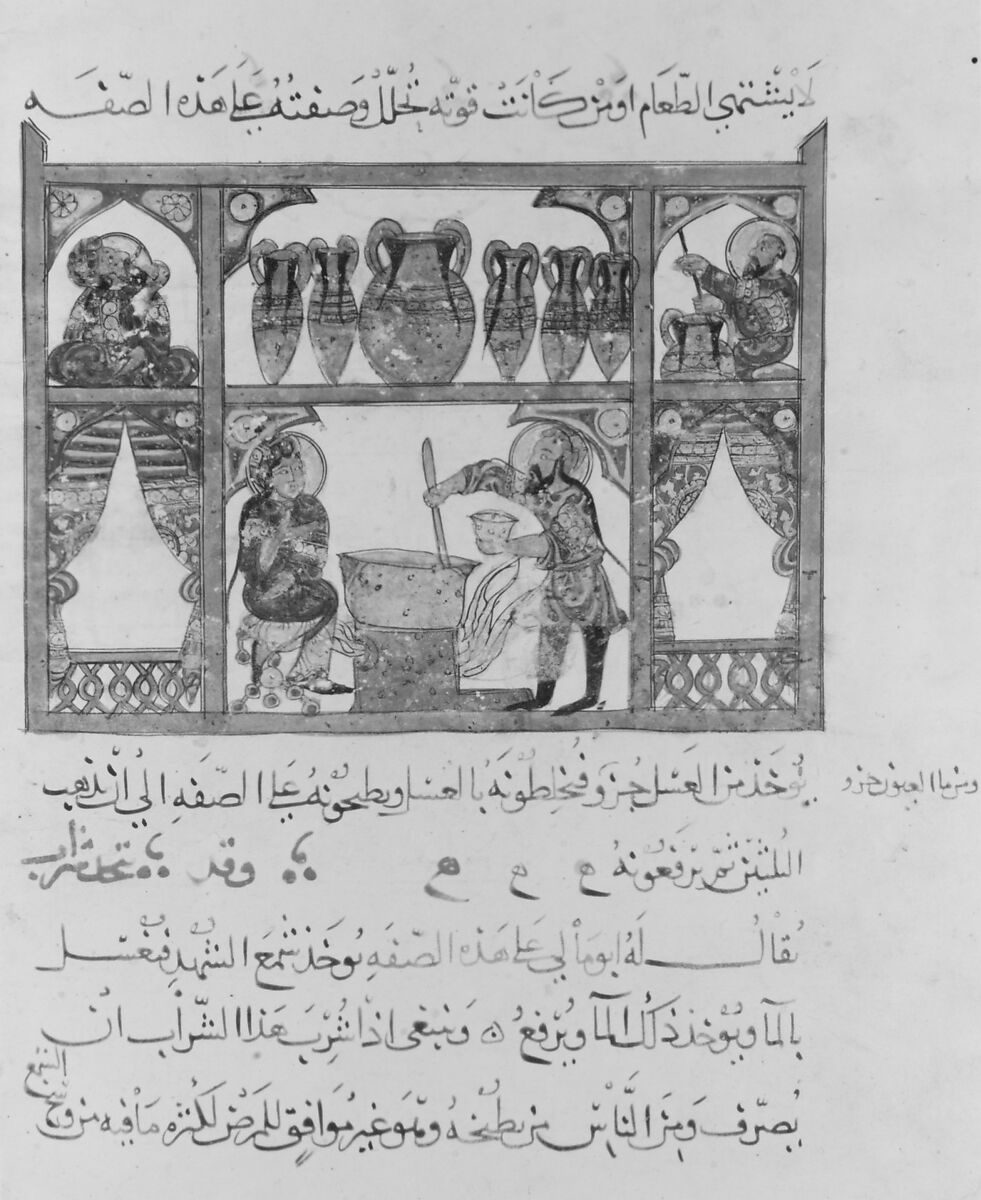 لَا يَشْتَهِي الطَّعَام اوَمَنْ كَانَتْ قوّته تُحَلَّلُ وَصفتهُ عَلَى هَذِه الصّفَه
يُوخَذ مِنَ العَسَل جُزو فَيَخلِطُونَهُ بالعَسَل ويطبخُونهُ عَلى الصّفَه الي اَنْ يَذهب
ومن ما العيون جزو
الثلثَيْن ثمّ يَرفَعُونهُ
وقد شراب
يُقالُ لَهُ ابومَالي عَلى هَذه الصّفَه يُوخَذ شَمَع الشهدِ فيُغسَل
بالمآ ويُوخَذ ذَلك المآ ويُرفعُ وَينبغى اذا شُرِبَ هَذا الشّرَاب انْ
يُصرّف وَمِنَ النَّاسِ من يَطبُخهُ وَهو غير مُوَافقٍ للمرَضَى لكثرة مَا فِيه من وسَخ
الشمع